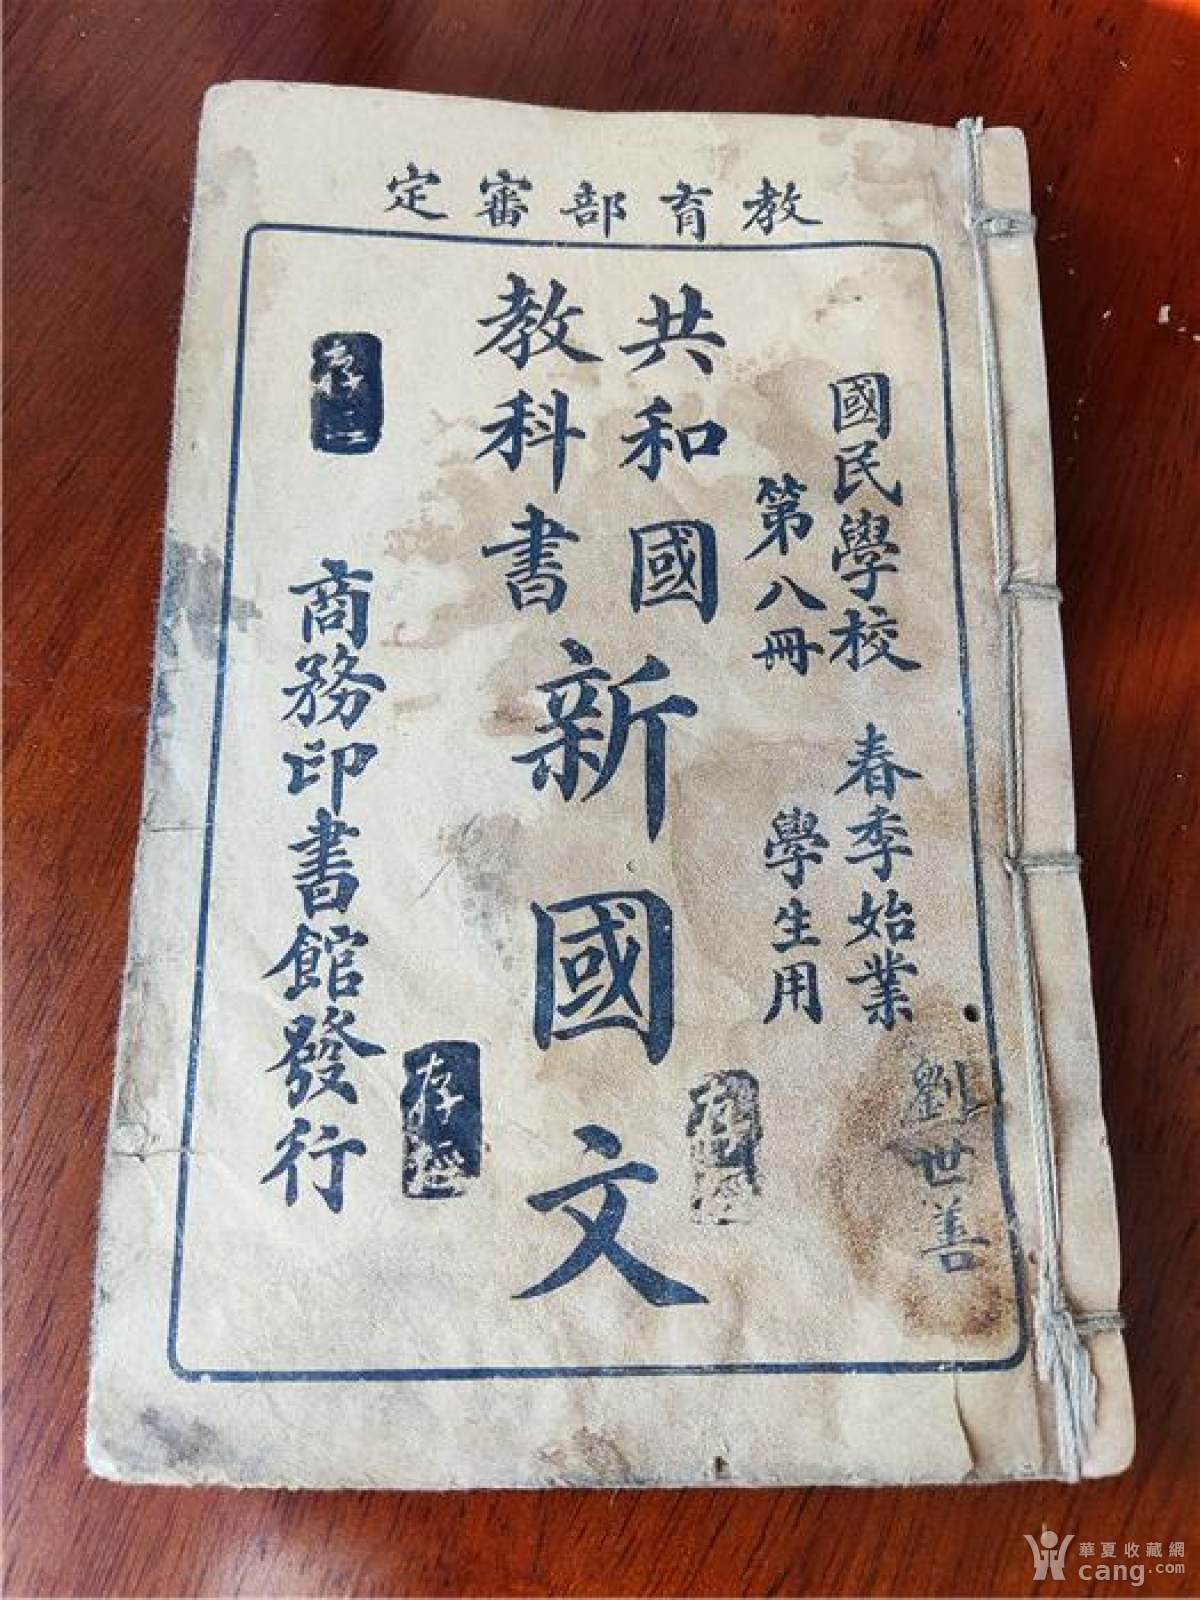 教育部審定
國民學校 春季始業
第八冊 學生用
共和國
教科書
新國文
商務印書館發行
劉世善
華夏收藏網
cang.com